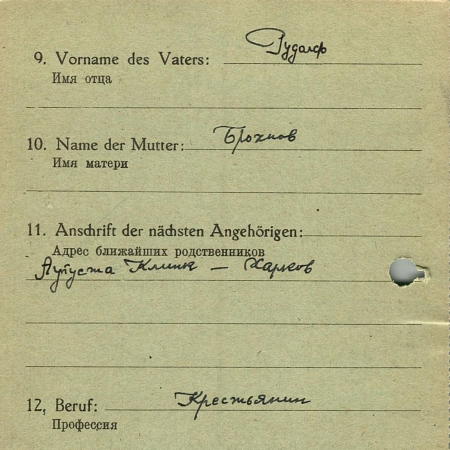 9. Vorname des Vaters: Рудалф
Имя отца
10. Name der Mutter: Брохнов
Имя матери
11. Anschrift der nächsten Angehörigen:
Адрес ближайших родственников
Аугуста Клинк — Харков
12, Beruf: Крестьянин
Профессия